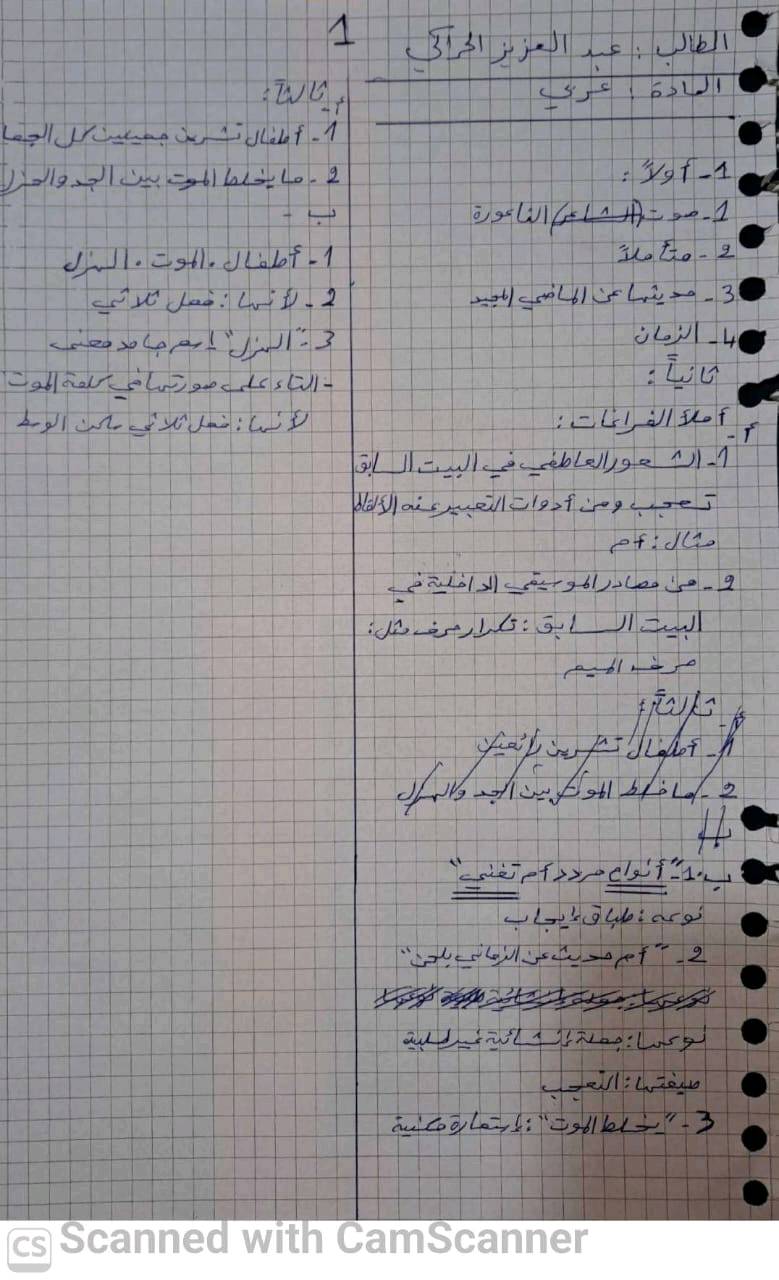 1
الطالب : عبد العزيز الحراكي
المادة : عربي
1- أولاً :
1- صوت (الشاعر) الناعورة
2- متأملاً
3- حديثها عن الماضي المجيد
4- الزمان
ثانياً :
أ- أملأ الفراغات :
1- الشعور العاطفي في البيت السابق
تعجب ومن أدوات التعبير عنه الألفاظ
مثال : أم
2- من مصادر الموسيقى الداخلية في
البيت السابق : تكرار حرف مثل :
حرف الميم
أ- ثالثاً :
1- أطفال تشرين رائعين
2- ما خلط الموت بين الجد والهزل
ب
ب. 1- "أنواح مردد أم تغني"
نوعه : طباق إيجاب
2- "أم حديث عن الزماني بلحن"
نوعها : جملة إنشائية غير طلبية
صيغتها : التعجب
3- "يخلط الموت" : إستعارة مكنية
أ- ثالثاً :
1- أطفال تشرين جميعين كل
2- ما يخلط الموت بين الجد والهزل
ب -
1- أطفال . الموت . الهزل
2- لأنها : فعل ثلاثي
3- "الهزل" إسم جامد معنى
- التاء على صورتها في كلمة الموت
لأنها : فعل ثلاثي ساكن الوسط
CS Scanned with CamScanner